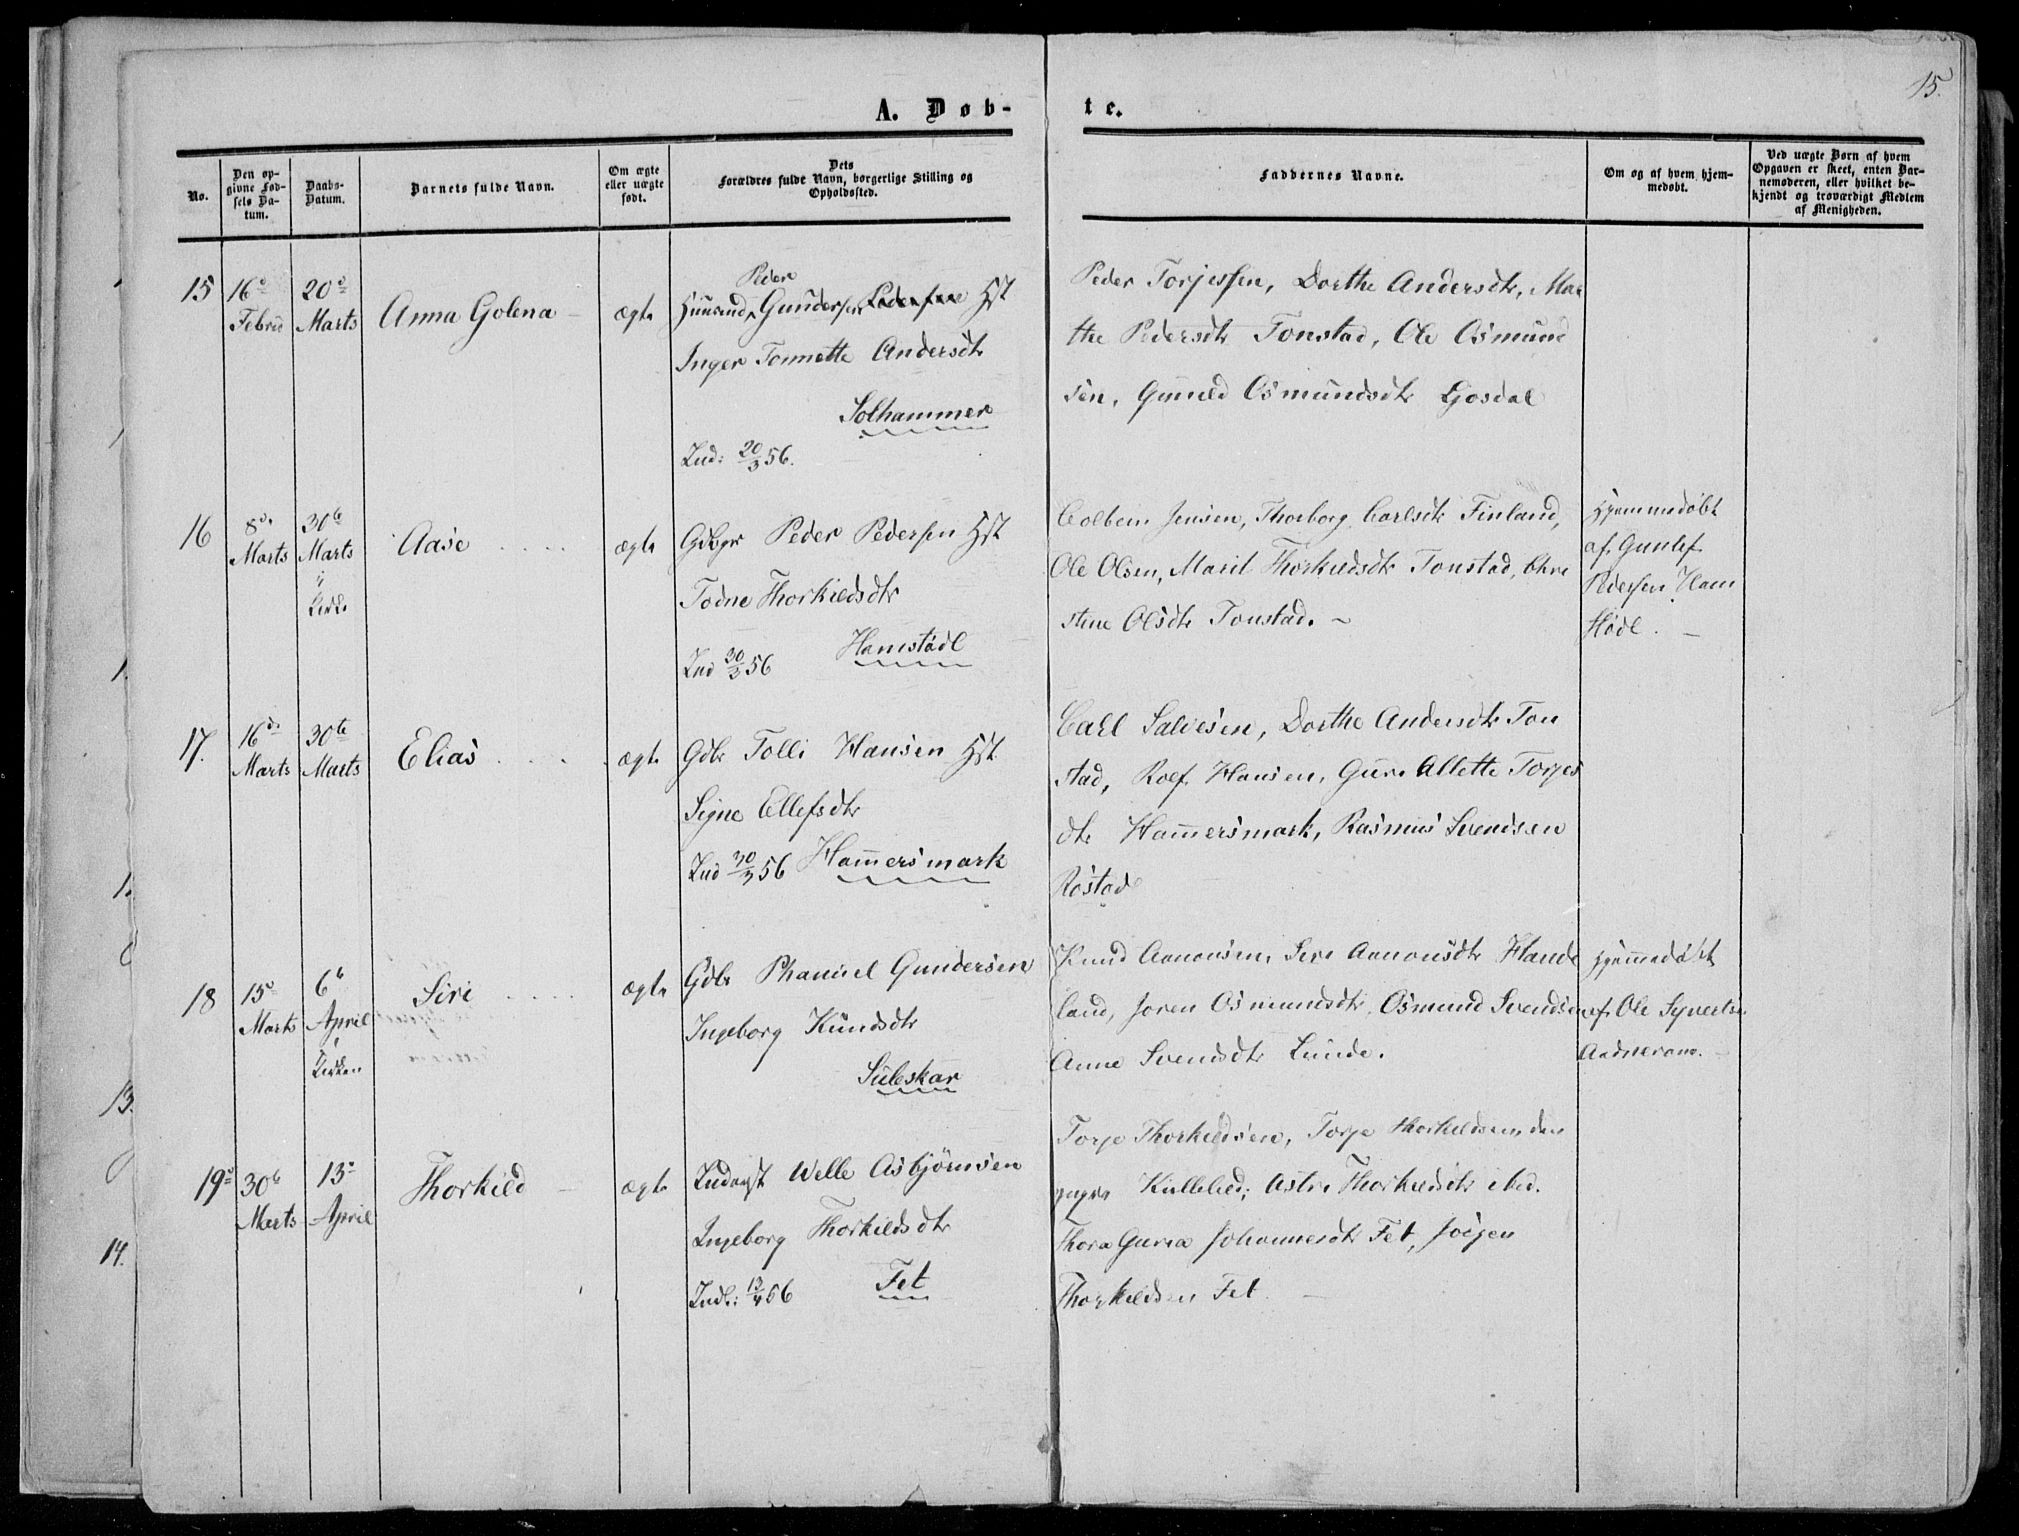 15.
A. Døb-
te.
No.
Den op-
givne Fød-
sels Da-
tum.
Daabs-
Datum.
Barnets fulde Navn.
Om ægte
eller uægte
født.
Dets
Forældres fulde Navn, borgerlige Stilling og
Opholdssted.
Faddernes Navne.
Om og af hvem hjem-
medøbt.
Ved uægte Børn af hvem
Opgaven er skeet, enten Bar-
nemoderen, eller hvilket be-
kjendt og troværdigt Medlem
af Menigheden.
15
16de
Febru
20de
Marts
Anna Golena
ægte
Peder
Huusmd Gundersen Pedersen Hst
Inger Tonnette Andersdtr
Solhammer
Ind: 20/3 56.
Peder Torjessen, Dorthe Andersdtr, Mar
the Pedersdtr Tonstad, Ole Osmund
sen, Gunild Osmundsdtr Josdal
16
8de
Marts
30te
Marts
i
Kirke
Aase
ægte
Gdbgr Peder Pedersen Hst
Todne Thorkildsdtr
Hamstødl
Ind 30/3 56
Colbein Jensen, Thorborg Carlsdtr Finland,
Ole Olsen, Marit Thorkildsdtr Tonstad, Chri
stine Olsdtr Tonstad.
Hjemmedøbt
af Gunlef
Pedersen Ham
stødl.
17.
16de
Marts
30te
Marts
Elias
ægte
Gdbr Tolli Hansen Hst
Signe Ellefsdtr
Ind 30/3 56 Hammersmark
Carl Salvesen, Dorthe Andersdtr Ton
stad, Rolf Hansen, Guri Allette Torjes
dtr Hammersmark, Rasmus Svendsen
Røstad
18
15de
Marts
6te
April
i
Kirken
Siri
ægte
Gdbr Phanuel Gundersen
Ingeborg Knudsdtr
Suleskar
Knud Aanonsen, Siri Aanonsdtr Hande
land, Joren Osmundsdtr, Osmund Svendsen
Anne Svendsdtr Lunde.
hjemmedøbt
af Ole Syvertsen
Aadneram.
19de
30te
Marts
13de
April
Thorkild
ægte
Inderst Welle Asbjørnsen
Ingeborg Thorkildsdtr
Indl: 13/4 56 Fet
Torje Thorkildsen, Torje Thorkildsen den
yngre Kvlleled; Astri Thorkildsdtr ibid.
Thora Guria Johannesdtr Fet, Jørgen
Thorkildsen Fet.
13.
14.